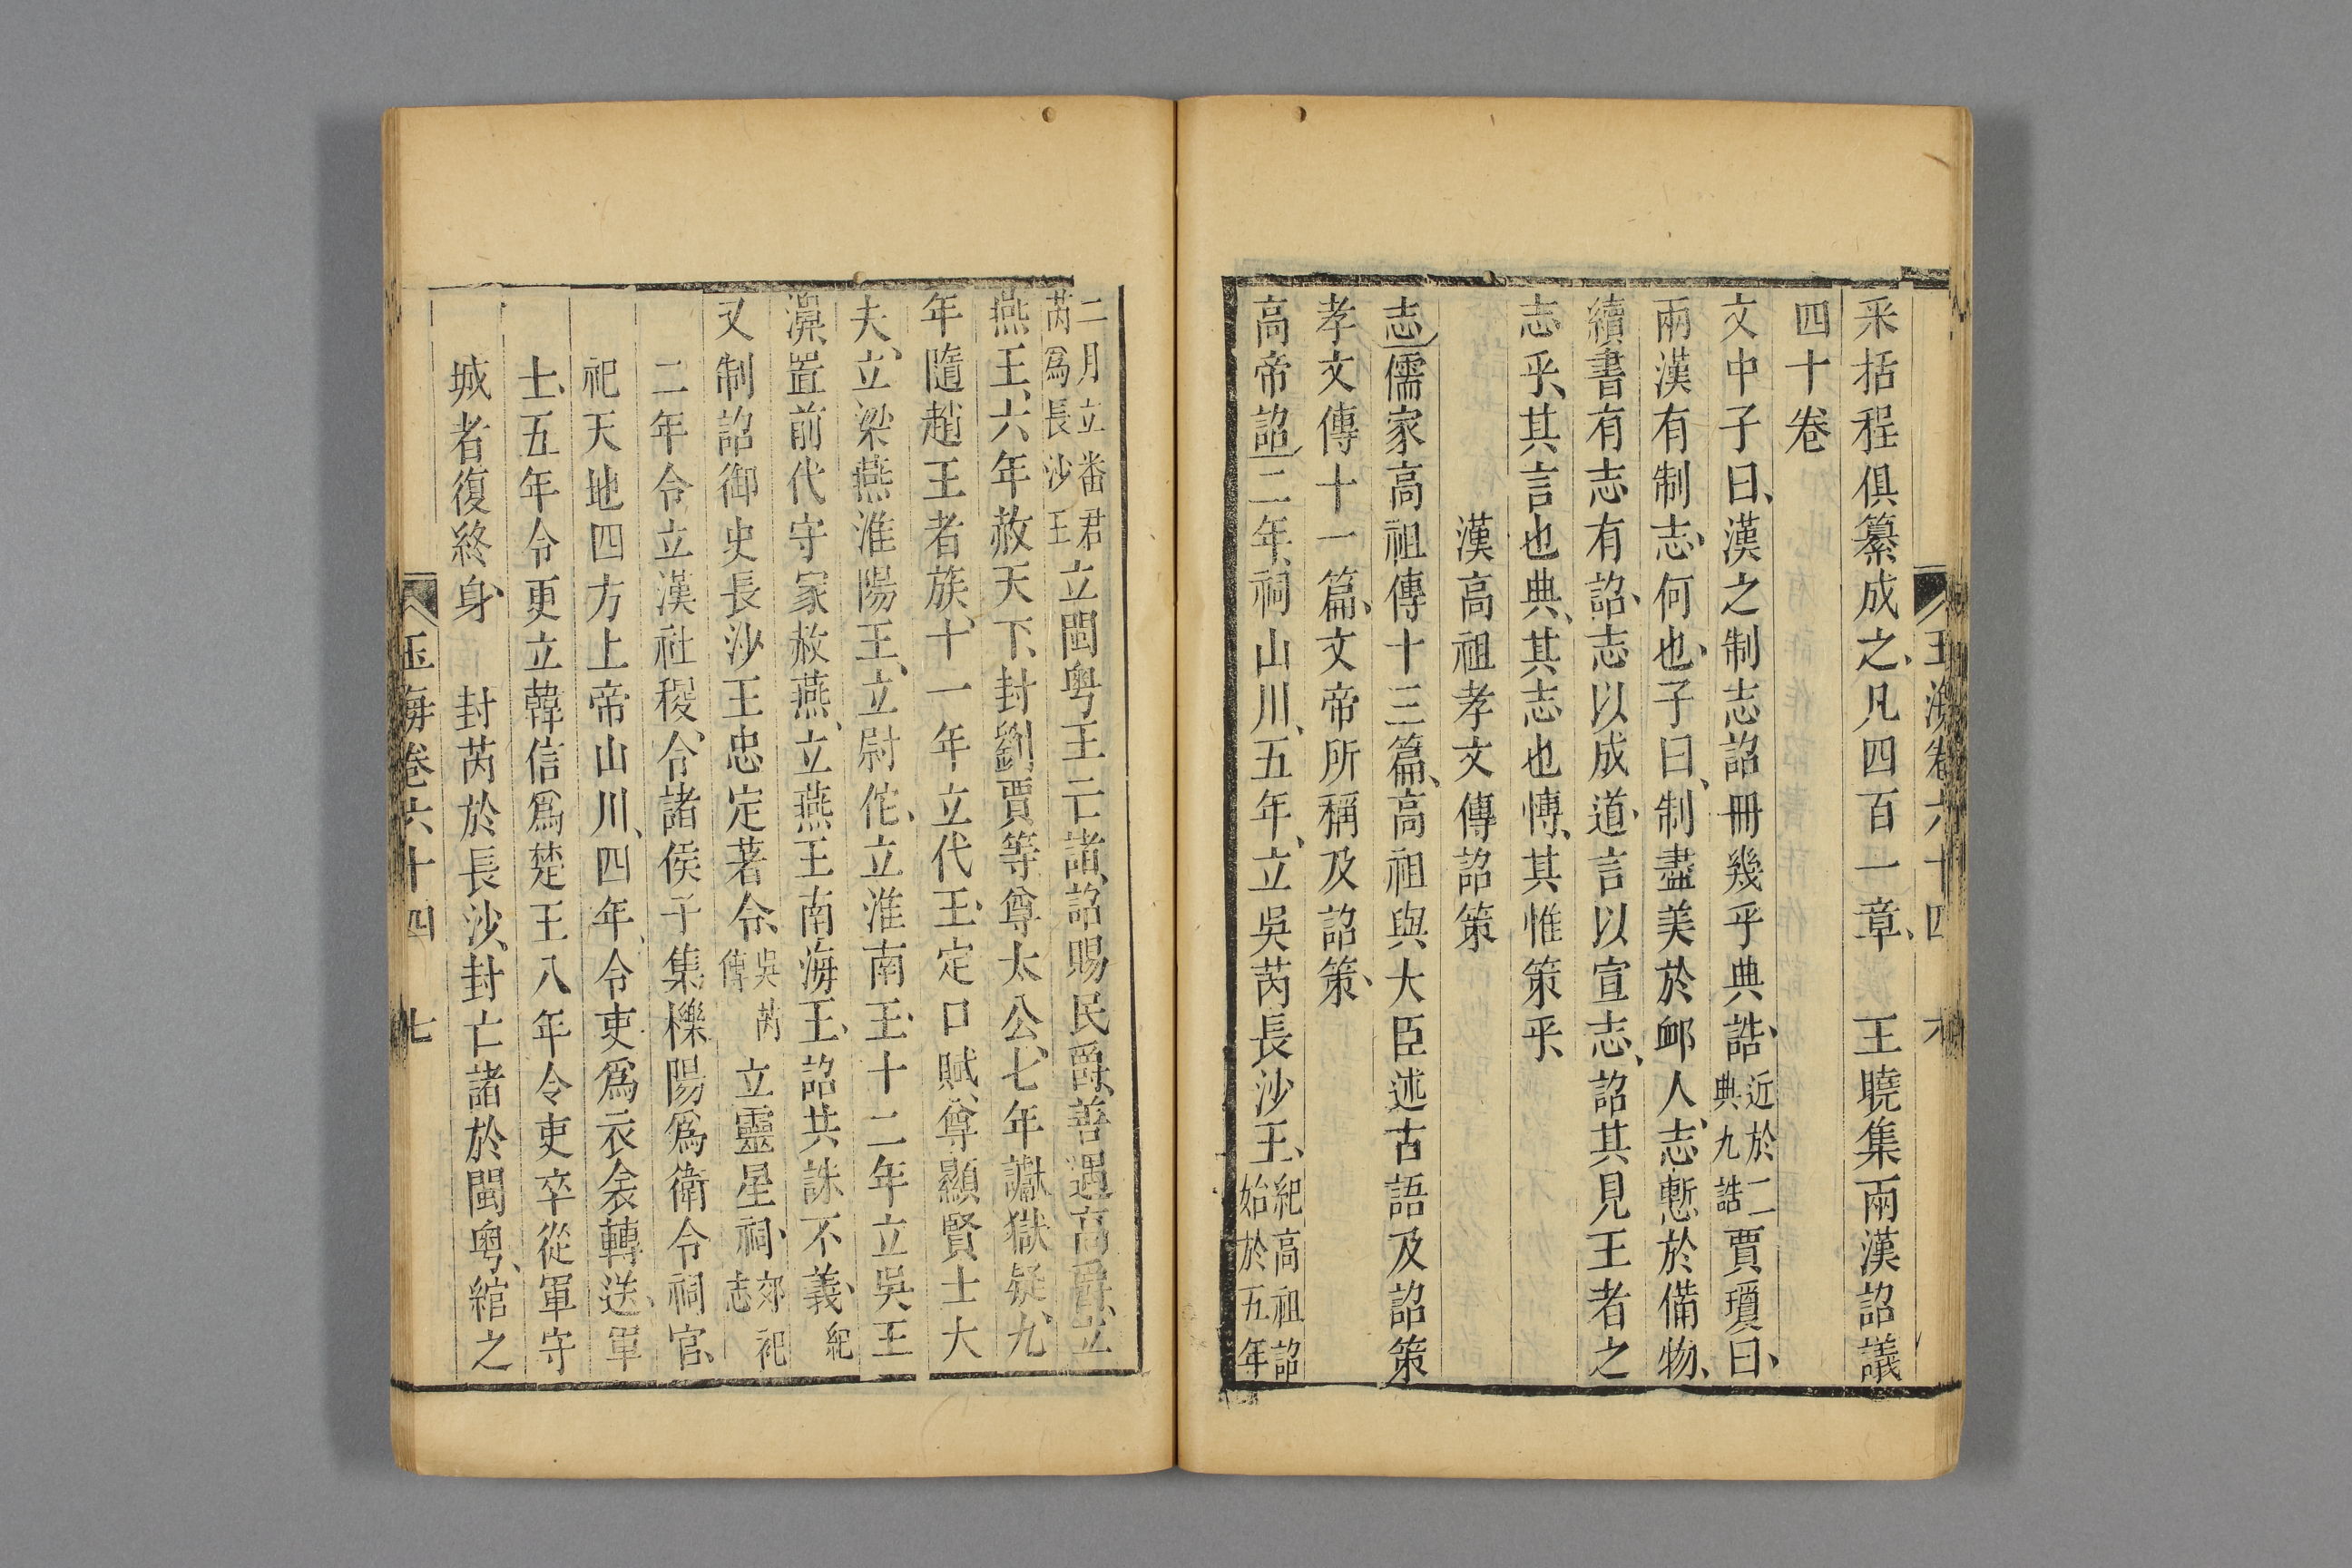 玉海卷六十四 六
采括程俱纂成之、凡四百一章、 王曉集兩漢詔議
四十卷
文中子曰、漢之制志詔冊幾乎典誥、近於二典九誥賈瓊曰、
兩漢有制志、何也、子曰、制盡美於邺人、志慙於備物、
續書有志有詔、志以成道、言以宣志、詔其見王者之
志乎、其言也典、其志也慱、其惟策乎、
漢高祖孝文傳詔策
志儒家高祖傳十三篇、高祖與大臣述古語及詔策
孝文傳十一篇、文帝所稱及詔策、
高帝詔二年、祠山川、五年、立吳芮長沙王、紀高祖詔始於五年
二月立番君芮爲長沙王立閩粤王亡諸、詔賜民爵、善遇高爵、立
燕王、六年赦天下、封劉賈等尊太公、七年讞獄疑、九
年隨趙王者族、十一年立代王、定口賦、尊顯賢士大
夫、立梁燕淮陽王、立尉佗、立淮南王、十二年立吳王
濞、置前代守冢赦燕、立燕王南海王、詔共誅不義、紀
又制詔御史長沙王忠定著令、吳芮傳 立靈星祠、郊祀志
二年令立漢社稷、令諸侯子集櫟陽爲衛令祠官、
祀天地四方上帝山川、四年、令吏爲衣衾轉送、軍
士、五年令更立韓信爲楚王八年令吏卒從軍守
城者復終身、 封芮於長沙、封亡諸於閩粤、綰之
玉海卷六十四 七